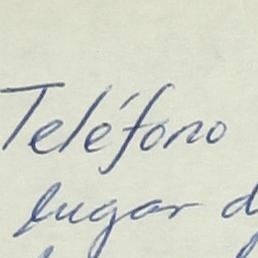 Teléfono
lugar d